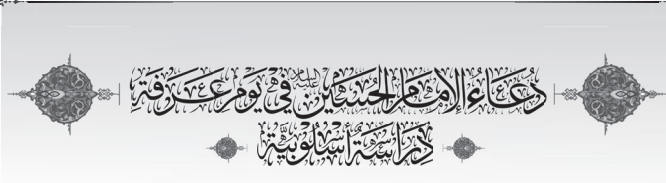 دُعَاءُ الإِمَامِ الحُسَيْنِ عليه السلام فِي يَوْمِ عَرَفَةَ
دِرَاسَةٌ أُسْلُوبِيَّةٌ